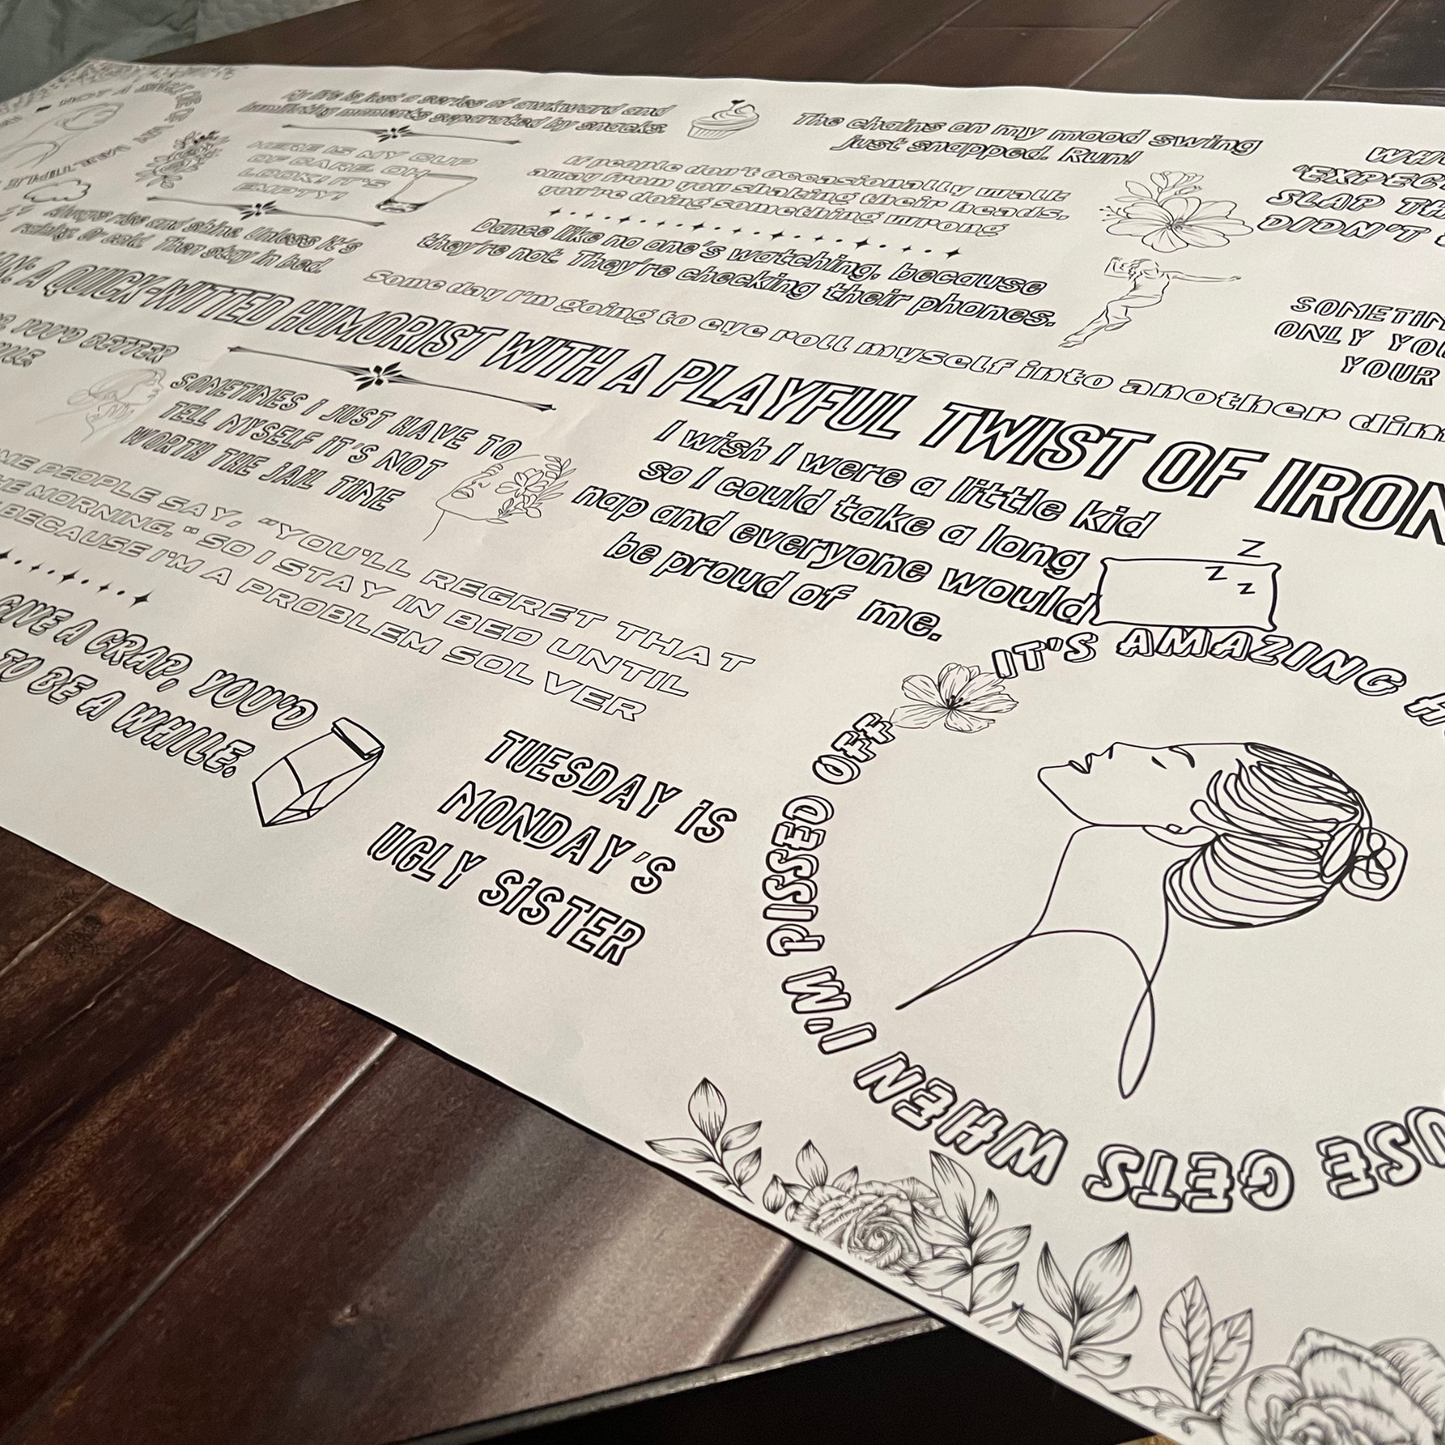 My life is just a series of awkward and
humiliating moments separated by snacks.
The chains on my mood swing
just snapped. Run!
NOT A
HERE IS MY CUP
OF CARE. OH
LOOK! IT'S
EMPTY!
If people don't occasionally walk
away from you shaking their heads,
you're doing something wrong
SLAP
DIDN'T
Always rise and shine. Unless it's
raining. Or cold. Then stay in bed.
Dance like no one's watching, because
they're not. They're checking their phones.
Some day I'm going to eye roll myself into another
ONLY
YOUR
A QUICK-WITTED HUMORIST WITH A PLAYFUL TWIST OF
YOU'D BETTER
SOMETIMES I JUST HAVE TO
TELL MYSELF IT'S NOT
WORTH THE JAIL TIME
I wish I were a little kid
so I could take a long
nap and everyone would
be proud of me.
Z
Z
Z
PEOPLE SAY, "YOU'LL REGRET THAT
MORNING." SO I STAY IN BED UNTIL
BECAUSE I'M A PROBLEM SOLVER
GIVE A CRAP, YOU'D
TO BE A WHILE.
TUESDAY IS
MONDAY'S
UGLY SISTER
IT'S AMAZING
GETS WHEN I'M PISSED OFF